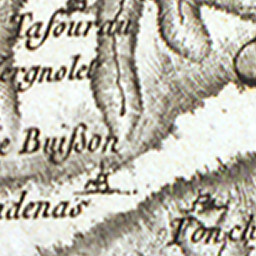 Tasourdu
Vergnolet
le Buisson
adenas
Tonch